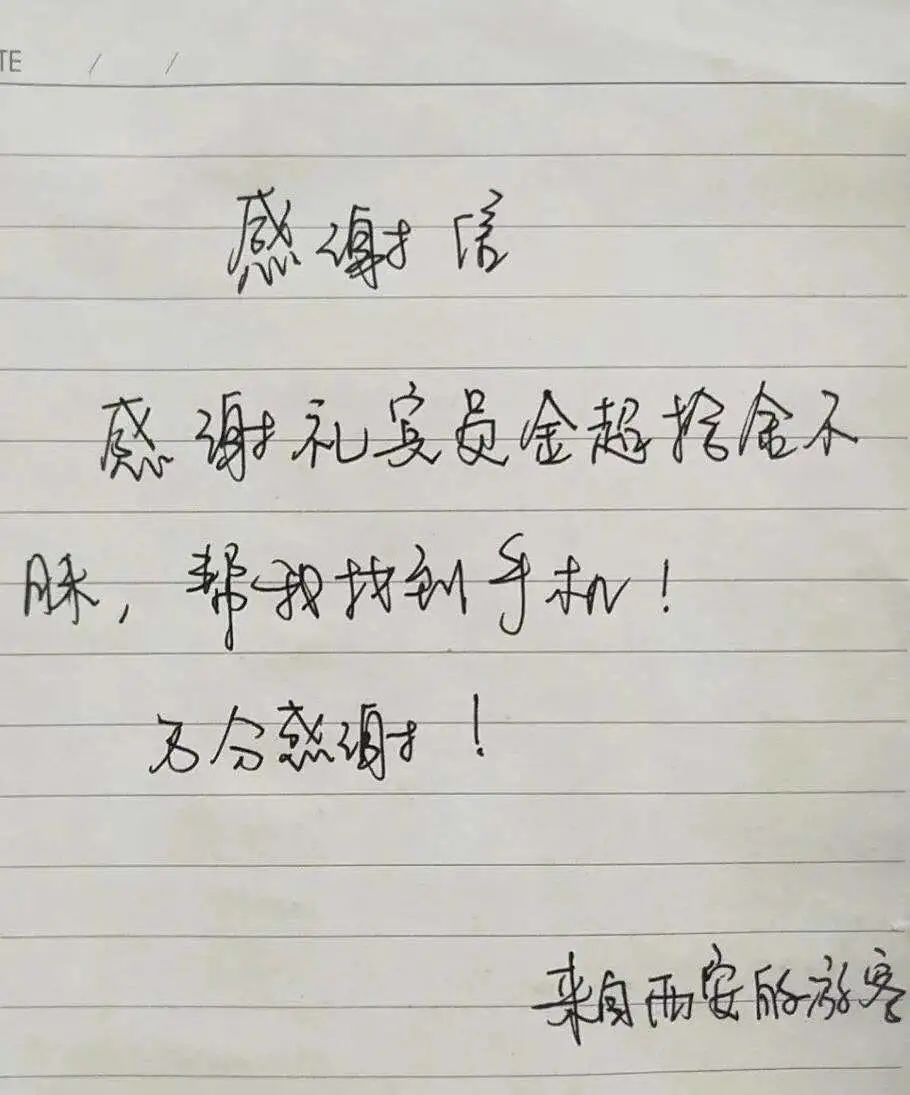 TE / /
感谢信
感谢礼宾员金超拾金不
昧，帮我找到手机！
万分感谢！
来自西安的旅客